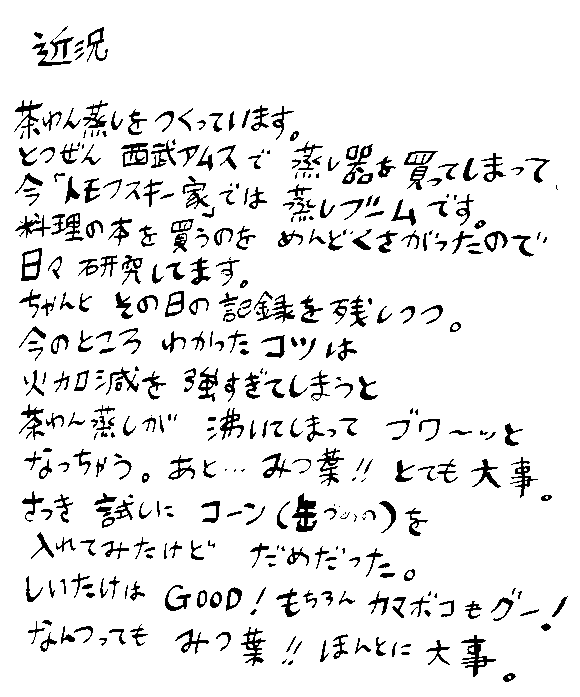 近況
茶わん蒸しをつくっています。
とつぜん 西武アムスで 蒸し器を買ってしまって、
今「トモフスキー家」では 蒸しブームです。
料理の本を買うのを めんどくさがったので
日々研究してます。
ちゃんと その日の記録を残しつつ。
今のところ わかったコツは
火加減を 強すぎてしまうと
茶わん蒸しが 沸いてしまって ブワ〜ッと
なっちゃう。あと… みつ葉!! とても大事。
さっき 試しに コーン(缶づめの)を
入れてみたけど だめだった。
しいたけは GOOD! もちろん カマボコもグー!
なんつっても みつ葉!! ほんとに大事。